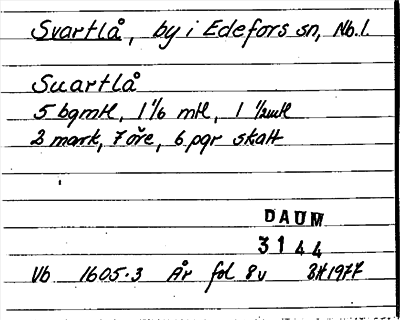 Svartlå, by i Edefors sn, Nb.l.
Suartlå
5 bgmtl, 1 1/6 mtl, 1 1/2mtl
2 mark, 7 öre, 6 pgr skatt
DAUM
3144
Vb 1605:3 År fol 8v 1977